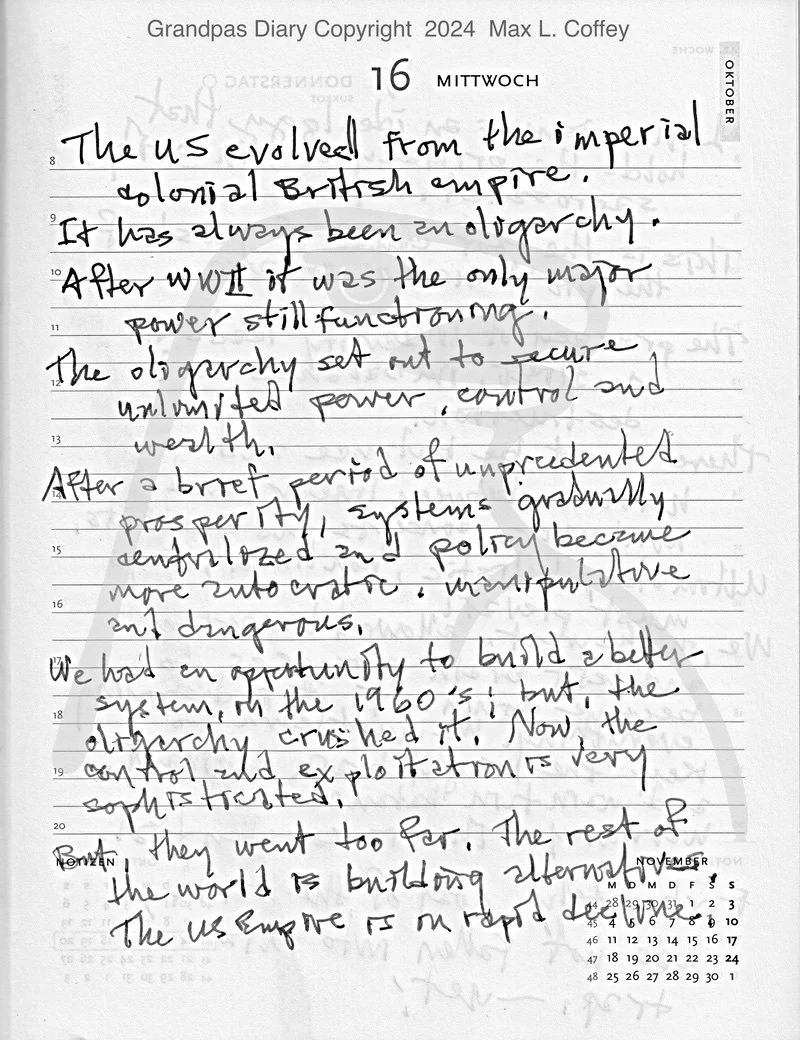 Grandpas Diary Copyright 2024 Max L. Coffey
16 MITTWOCH
OKTOBER
8
The US evolved from the imperial
colonial British empire.
9
It has always been an oligarchy.
10
After WWII it was the only major
11
power still functioning.
The oligarchy set out to secure
12
unlimited power, control and
13
wealth.
After a brief period of unprecedented
14
prosperity, systems gradually
15
centralized and policy became
more autocratic, manipulative
16
and dangerous.
17
We had an opportunity to build a better
system, in the 1960's; but, the
18
oligarchy crushed it. Now, the
19
control and exploitation is very
sophisticated.
20
But, they went too far. The rest of
NOTIZEN
the world is building alternatives.
The US Empire is in rapid decline.
NOVEMBER
M D M D F S S
44 28 29 30 31 1 2 3
45 4 5 6 7 8 9 10
46 11 12 13 14 15 16 17
47 18 19 20 21 22 23 24
48 25 26 27 28 29 30 1